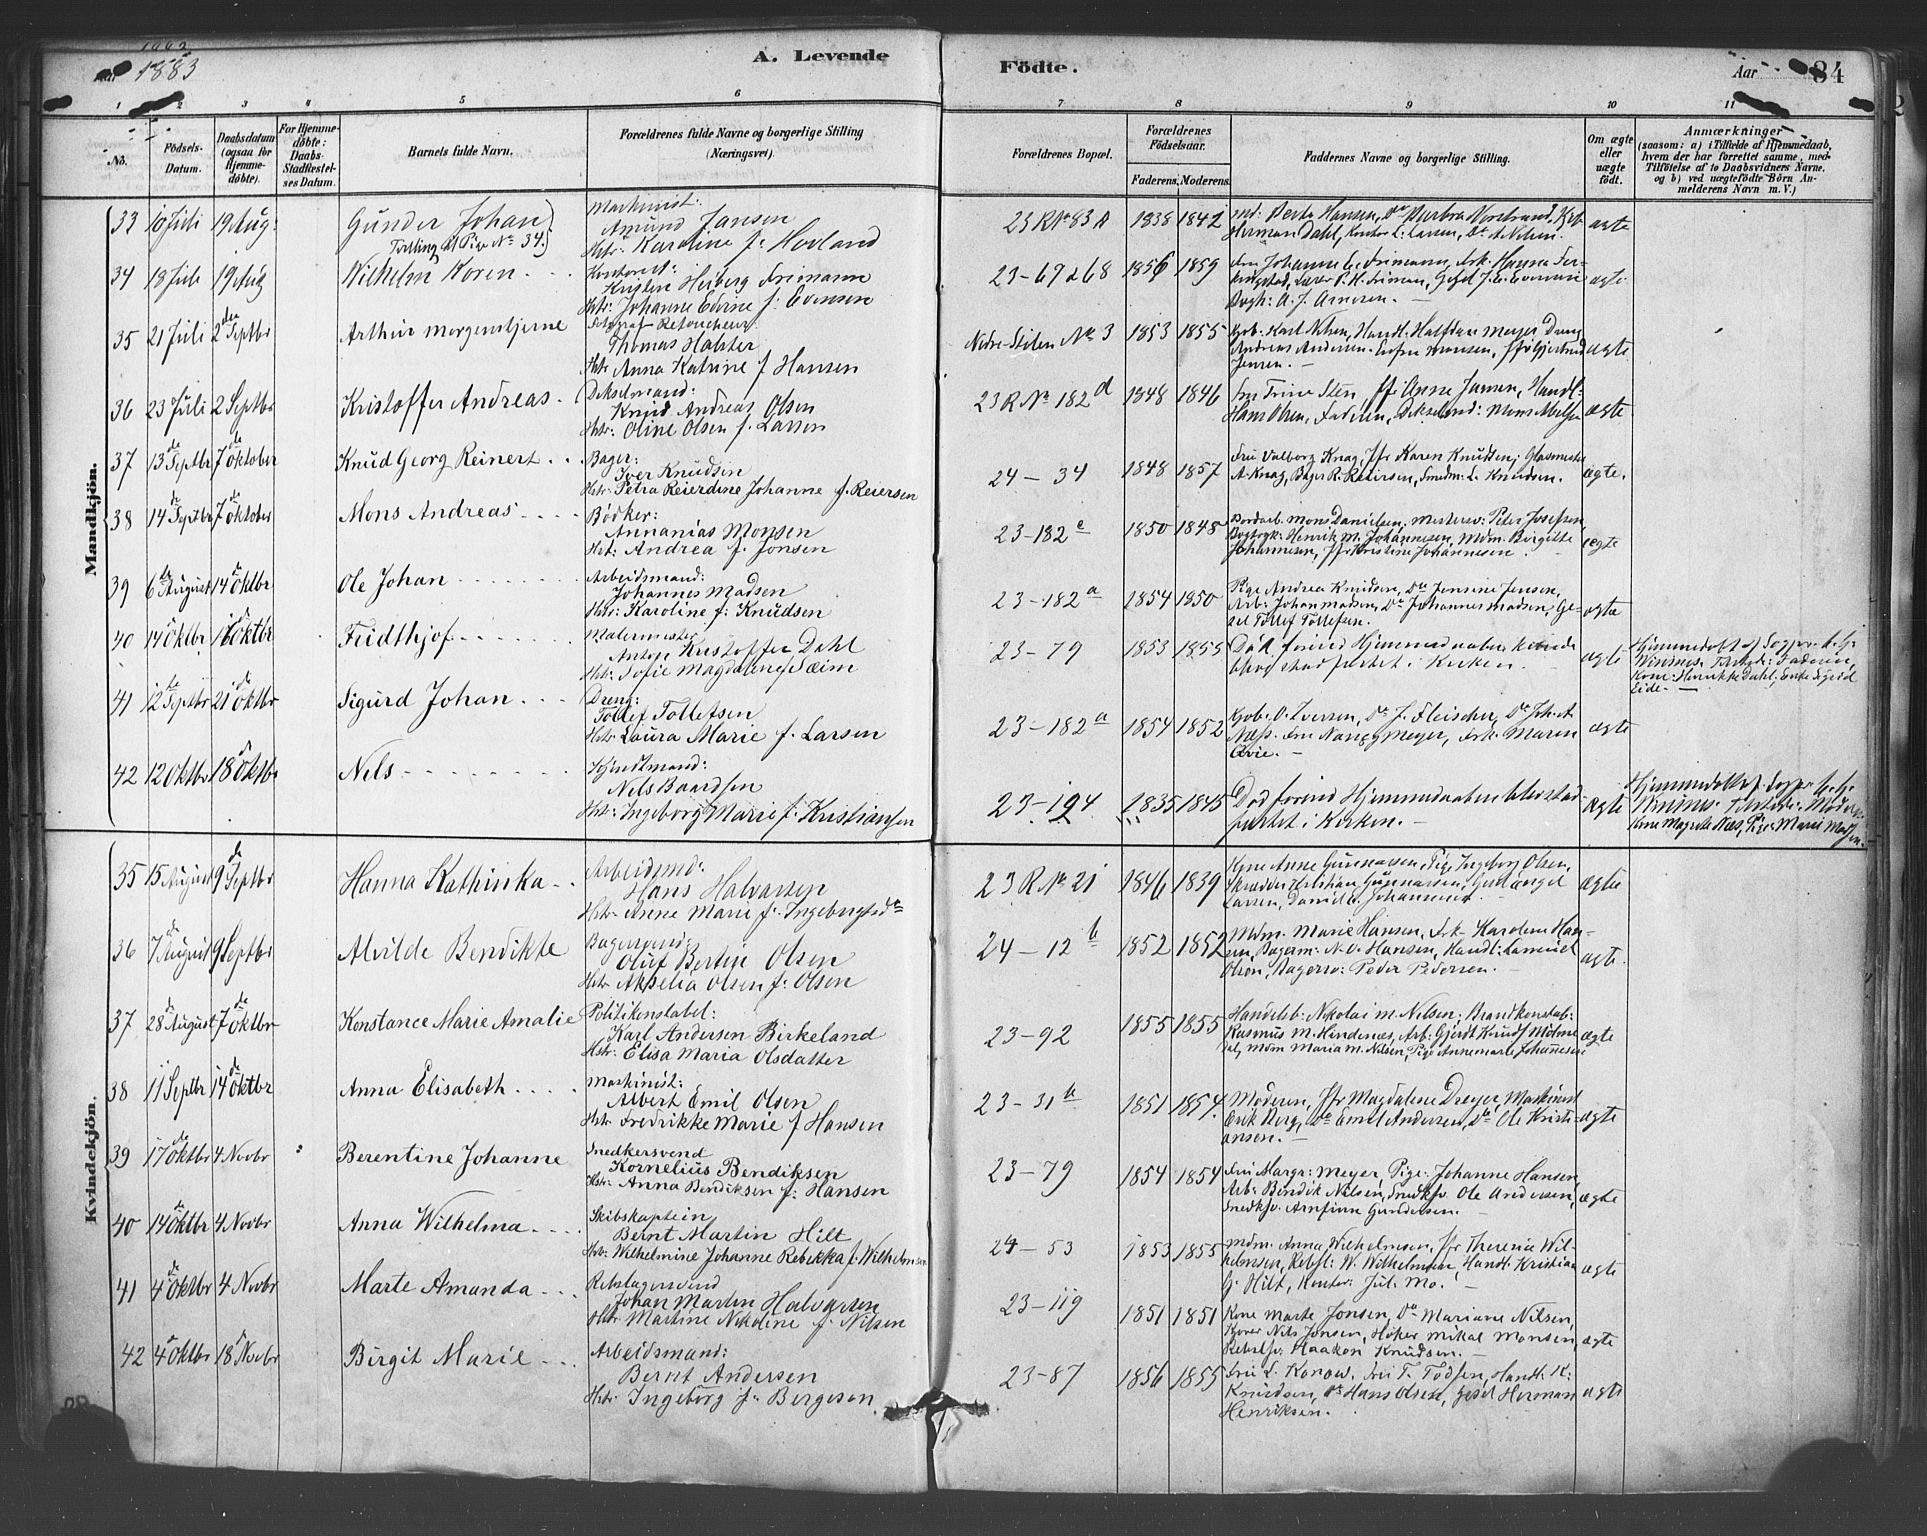 1883
A. Levende
Födte.
Aar
84
1 2 3 4 5 6 7 8 9 10 11
No.
Födsels-Datum.
Daabsdatum (ogsaa for Hjemme-döbte).
For Hjemme-döbte: Daabs-Stadfæstel-ses Datum.
Barnets fulde Navn.
Forældrenes fulde Navne og borgerlige Stilling (Næringsvei).
Forældrenes Bopæl.
Forældrenes Födselsaar.
Faderens. Moderens.
Faddernes Navne og borgerlige Stilling.
Om ægte eller uægte födt.
Anmærkninger
(saasom: a) i Tilfælde af Hjemmedaab, hvem der har forrettet samme, med Tilföielse af to Daabsvidners Navne, og b) ved uægtefödte Börn Anmelderens Navn m. V.)
Mandkjön.
33 10 Juli 19 Aug: Gunder Johan Maskinist:
Tvilling til Pige No 34. Amund Jansen
Hstr: Karoline f. Hovland
23 R No 83 A 1838 1842 ægte
Herman Dahl, Kontor L. Larsen, Do A. Nilsen.
34 18 Juli 19 Aug Wilhelm Koren Kontorist:
Kristen Herberg Frimann
Hstr: Johanne Evine f. Evensen
23-67 & 68 1856 1859 Fru Johanne C. Frimann, Frk. Hanna
ægte
35 21 Juli 2den Septbr Arthur Morgenstjerne Fotograf-Retoucheur
Thomas Halster
Hstr Anna Katrine f Hansen
Nedre-Stølen No 3 1853 1855 Kjøb. Karl Nilsen, Handl. Halfdan Meyer, Dreng
Andreas Andersen
Jensen. ægte
36 23 Juli 2 Septbr Kristoffer Andreas Dikselmand:
Knud Andreas Olsen
Hstr: Oline Olsen f. Larsen
23 R No 182 d 1848 1846 Fru Trine Sten, Jfr Anne Jansen, Handl.
Hans Olsen, Faderen, ægte
37 13de Septbr 7de Oktober Knud Georg Reinert Bager:
Iver Knudsen
Hstr: Petra Reierdine Johanne f. Reiersen
24-34 1848 1857 Fru Valborg Knag, Jfr Karen Knudsen, Glasmester
A. Knag, Bager R. Reiersen, Smedm. L. Knudsen. ægte.
38 14de Septbr 7de Oktober Mons Andreas Bødker:
Annanias Monsen
Hst: Andrea f. Jonsen
23-182 e 1850 1848 Mons Danielsen, Peter Josefsen,
Bogtryk: Henrik M. Johannesen, Mdm. Birgitte
Johannesen, Jfr Kristine Johannesen. ægte
39 6te August 14de Oktbr Ole Johan Arbeidsmand:
Johannes Madsen
Hstr: Karoline f. Knudsen
23-182 a 1854 1850 Pige Andrea Knudsen, Do Jensine Jensen,
Arb: Johan Madsen, Do Johannes Madsen, Ge-
sel Tollef Tollefsen. ægte
40 14 Oktbr 16 Oktbr Fridthjof Malermester
Anton Kristoffer Dahl
Hstr: Sofie Magdalene f Seim
23-79 1853 1855 Død forend Hjemmedaaben kunde
blive stadfæstet i Kirken. ægte
Faderen,
Kone Henrikke Dahl, Enke Sigrid
Eide.
41 12te Septbr 21de Oktbr Sigurd Johan Dreng:
Tollef Tollefsen
Hstr Laura Marie f. Larsen
23-182 a 1854 1852 Kjøb. O. Iversen, Do J. Fleischer, Do Joh. A
Næss. Fru Nanny Meyer, Frk. Maren
ægte
42 12 Oktbr 18 Oktbr Nils
Nils Baardsen
Hst: Ingeborg Marie f. Kristiansen
23-124 1835 1845 Død forend Hjemmedaaben blev stad-
fæstet i Kirken. ægte
Kone Magrete Næs, Pige Marie
Kvindekjön.
35 15 August 9de Septbr Hanna Kathinka Arbeidsmd:
Hans Halvarsen
Hstr Anne Marie f. Ingebrigtsdtr
23 R No 21 1846 1839 Kone Anne Gunnarsen, Pige Ingeborg Olsen,
Skrædder Kristian Gunnarsen,
Larsen, Daniel Johannesen ægte
36 7de August 9 Septbr Alvilde Bendikte Bagersvend
Oluf Bertin Olsen
Hstr Akselia Olsen f: Olsen
24-12 b 1852 1852 Mdm. Marie Hansen, Frk Karoline Han-
sen, Bagerm: N. O. Hansen, Handl: Lamuel
Olsen, Bagersv: Peder Pedersen. ægte.
37 28de August 7de Oktbr Konstance Marie Amalie Politikonstabel:
Karl Andersen Birkeland
Hstr: Elisa Maria Olsdatter
23-92 1855 1855 Handelsb: Nikolai M. Nilsen, Brandkonstab:
Rasmus M. Hindenæs, Arb: Gjerdt Knuds
Mdm Maria M. Nilsen, Pige Annemarte Johannesen ægte
38 11 Septbr 14de Oktbr Anna Elisabeth Maskinist:
Albert Emil Olsen
Hstr Fredrikke Marie f Hansen
23-31 a 1851 1854 Moderen, Jfr Magdalene Dreyer, Maskinist
Erik Berg, Do Emil Andersen, Do Ole Kristi-
ansen. ægte
39 17de Oktbr 4 Novbr Berentine Johanne Snedkersvend
Kornelius Bendiksen
Hstr: Anna Bendiksen f: Hansen
23-79 1854 1854 Fru Margr: Meyer, Pige: Johanne Hansen
Arb: Bendik Nilsen, Snedksv. Ole Andersen,
Snedksv. Arnfinn Gundersen. ægte
40 14de Oktbr 4 Novbr Anna Wilhelma Skibskaptein
Bernt Martin Hilt
Hstr: Wilhelmine Johanne Rebekka f. Wilhelmsen
24-53 1853 1855 Mdm. Anna Wilhelmsen, Jfr Theresia Wil-
helmsen, Rebsl: W. Wilhelmsen Handl: Kristian
G. Hilt, Kontor: Jul. Mo. ægte
41 4de Oktbr 4 Novbr Marte Amanda Rebslagersvend
Johan Martin Halvarsen
Hstr Martine Nikoline f. Nilsen
23-119 1851 1851 Kone Marte Jonsen, Do Mariane Nilsen,
Nils Jonsen, Høker Mikal Monsen,
Rebslsv. Haakon Knudsen. ægte
42 4 Oktbr 18 Novbr Birgit Marie Arbeidsmand:
Bernt Andersen
Hstr: Ingeborg f: Bergesen
23-87 1856 1855 Fru L. Konow, Fru T. Todsen, Handl: K:
Knudsen, Do Hans Olsen, Gesel Herman
Henriksen. ægte